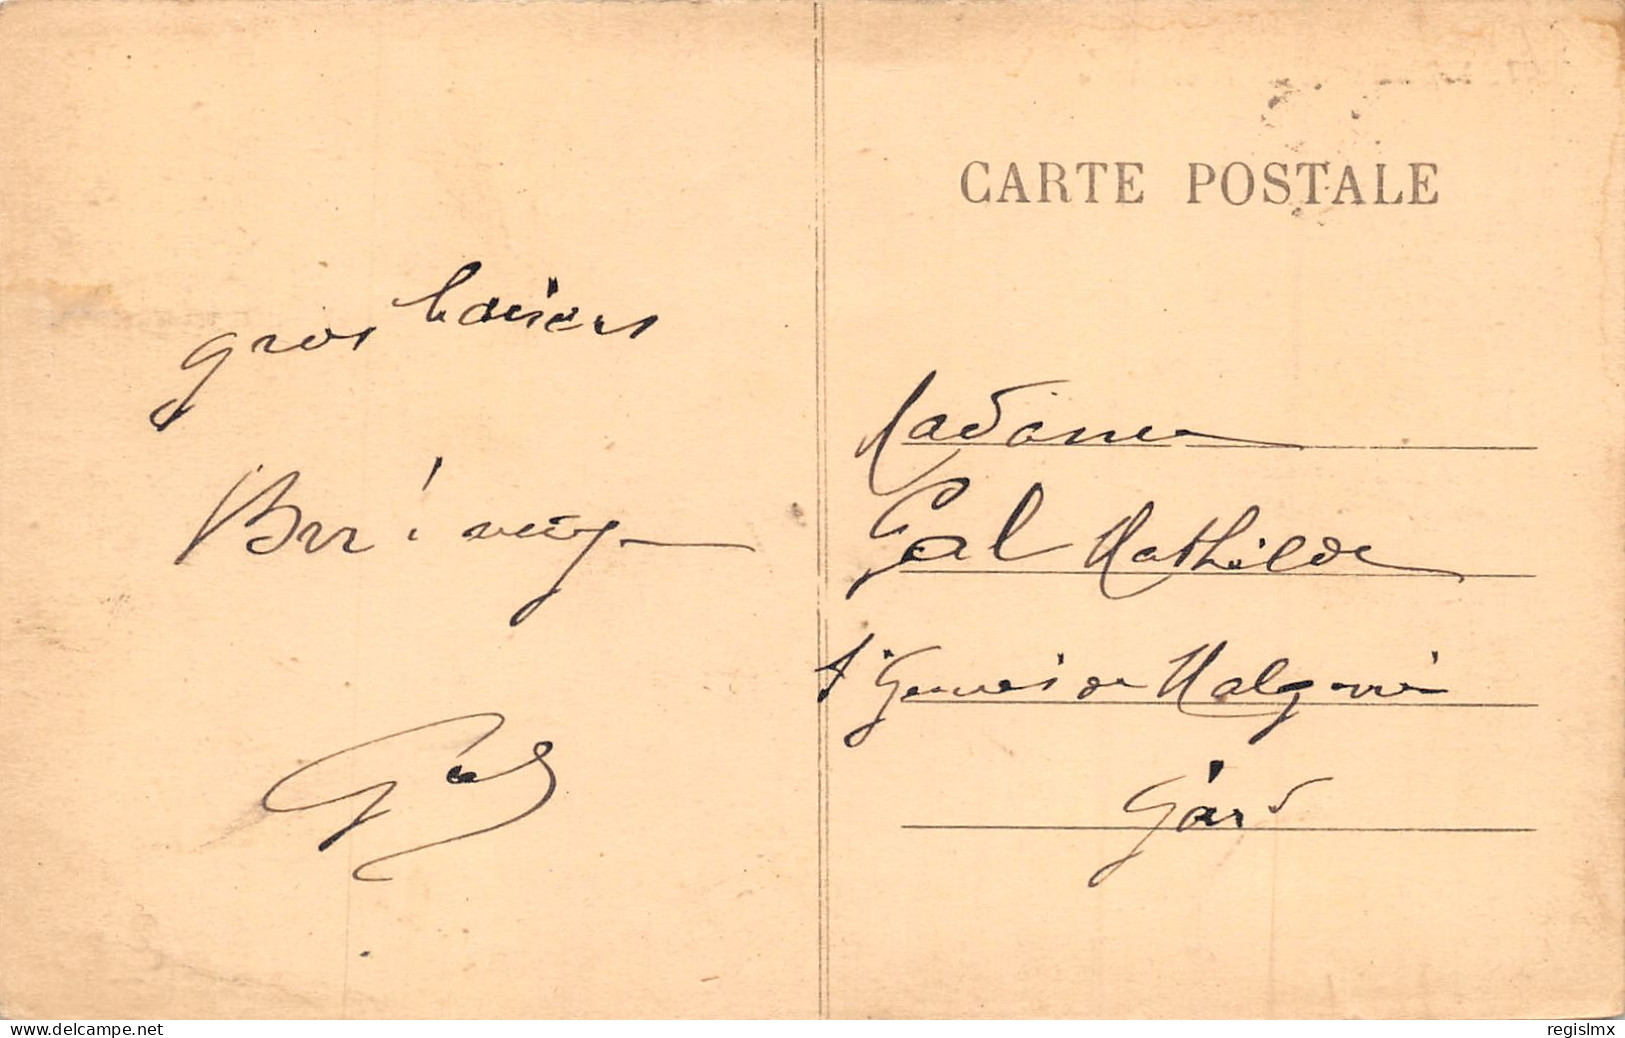 gros baisers
CARTE POSTALE
Madame
Gal Mathilde
St Geniès de Malgoirès
Gard
www.delcampe.net
regislmx